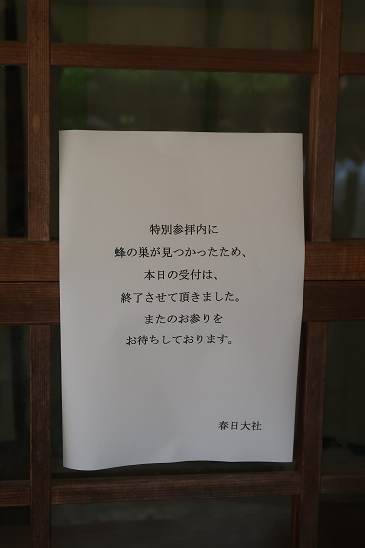 特別参拝内に
蜂の巣が見つかったため、
本日の受付は、
終了させて頂きました。
またのお参りを
お待ちしております。
春日大社